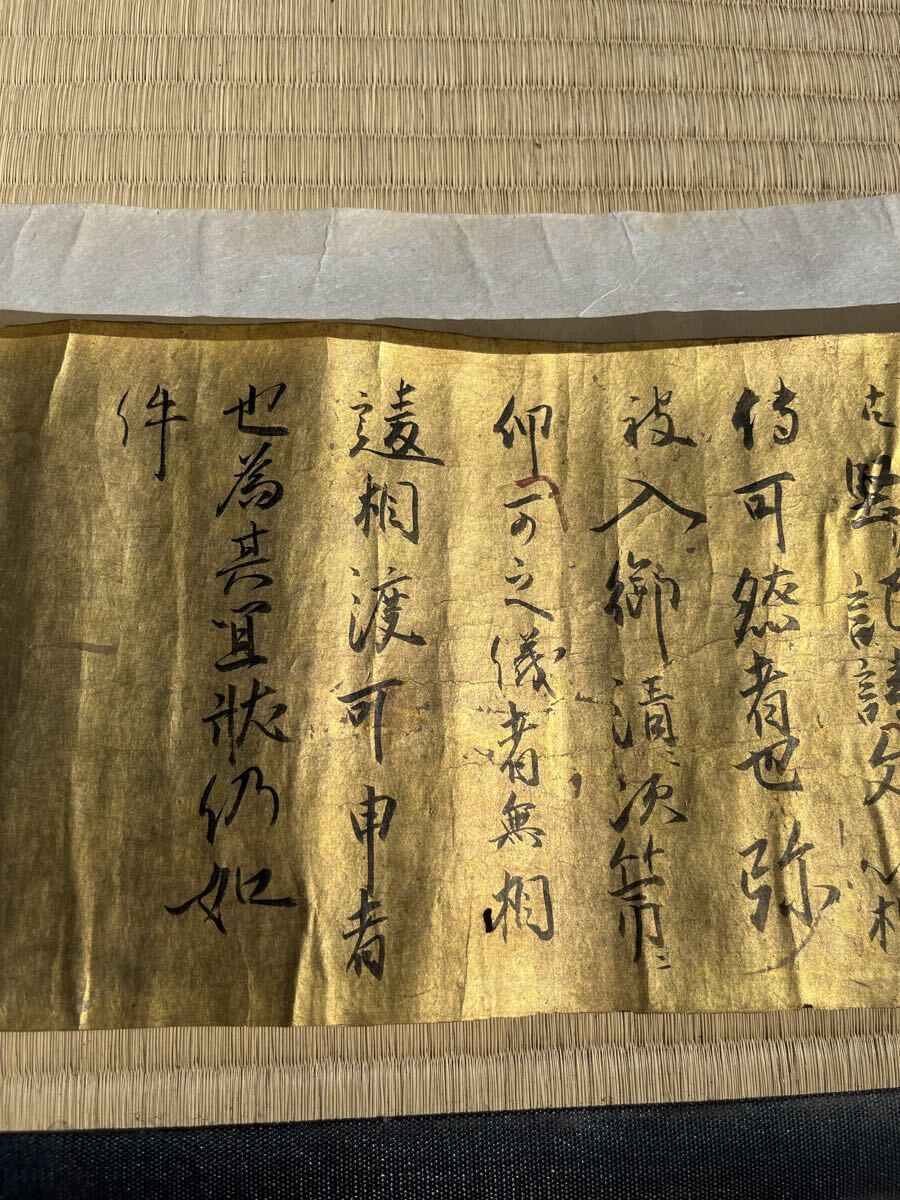 待可然者也弥
被入御清次第ニ
仰可之儀者無相
違相渡可申者
也為其宜状仍如
件